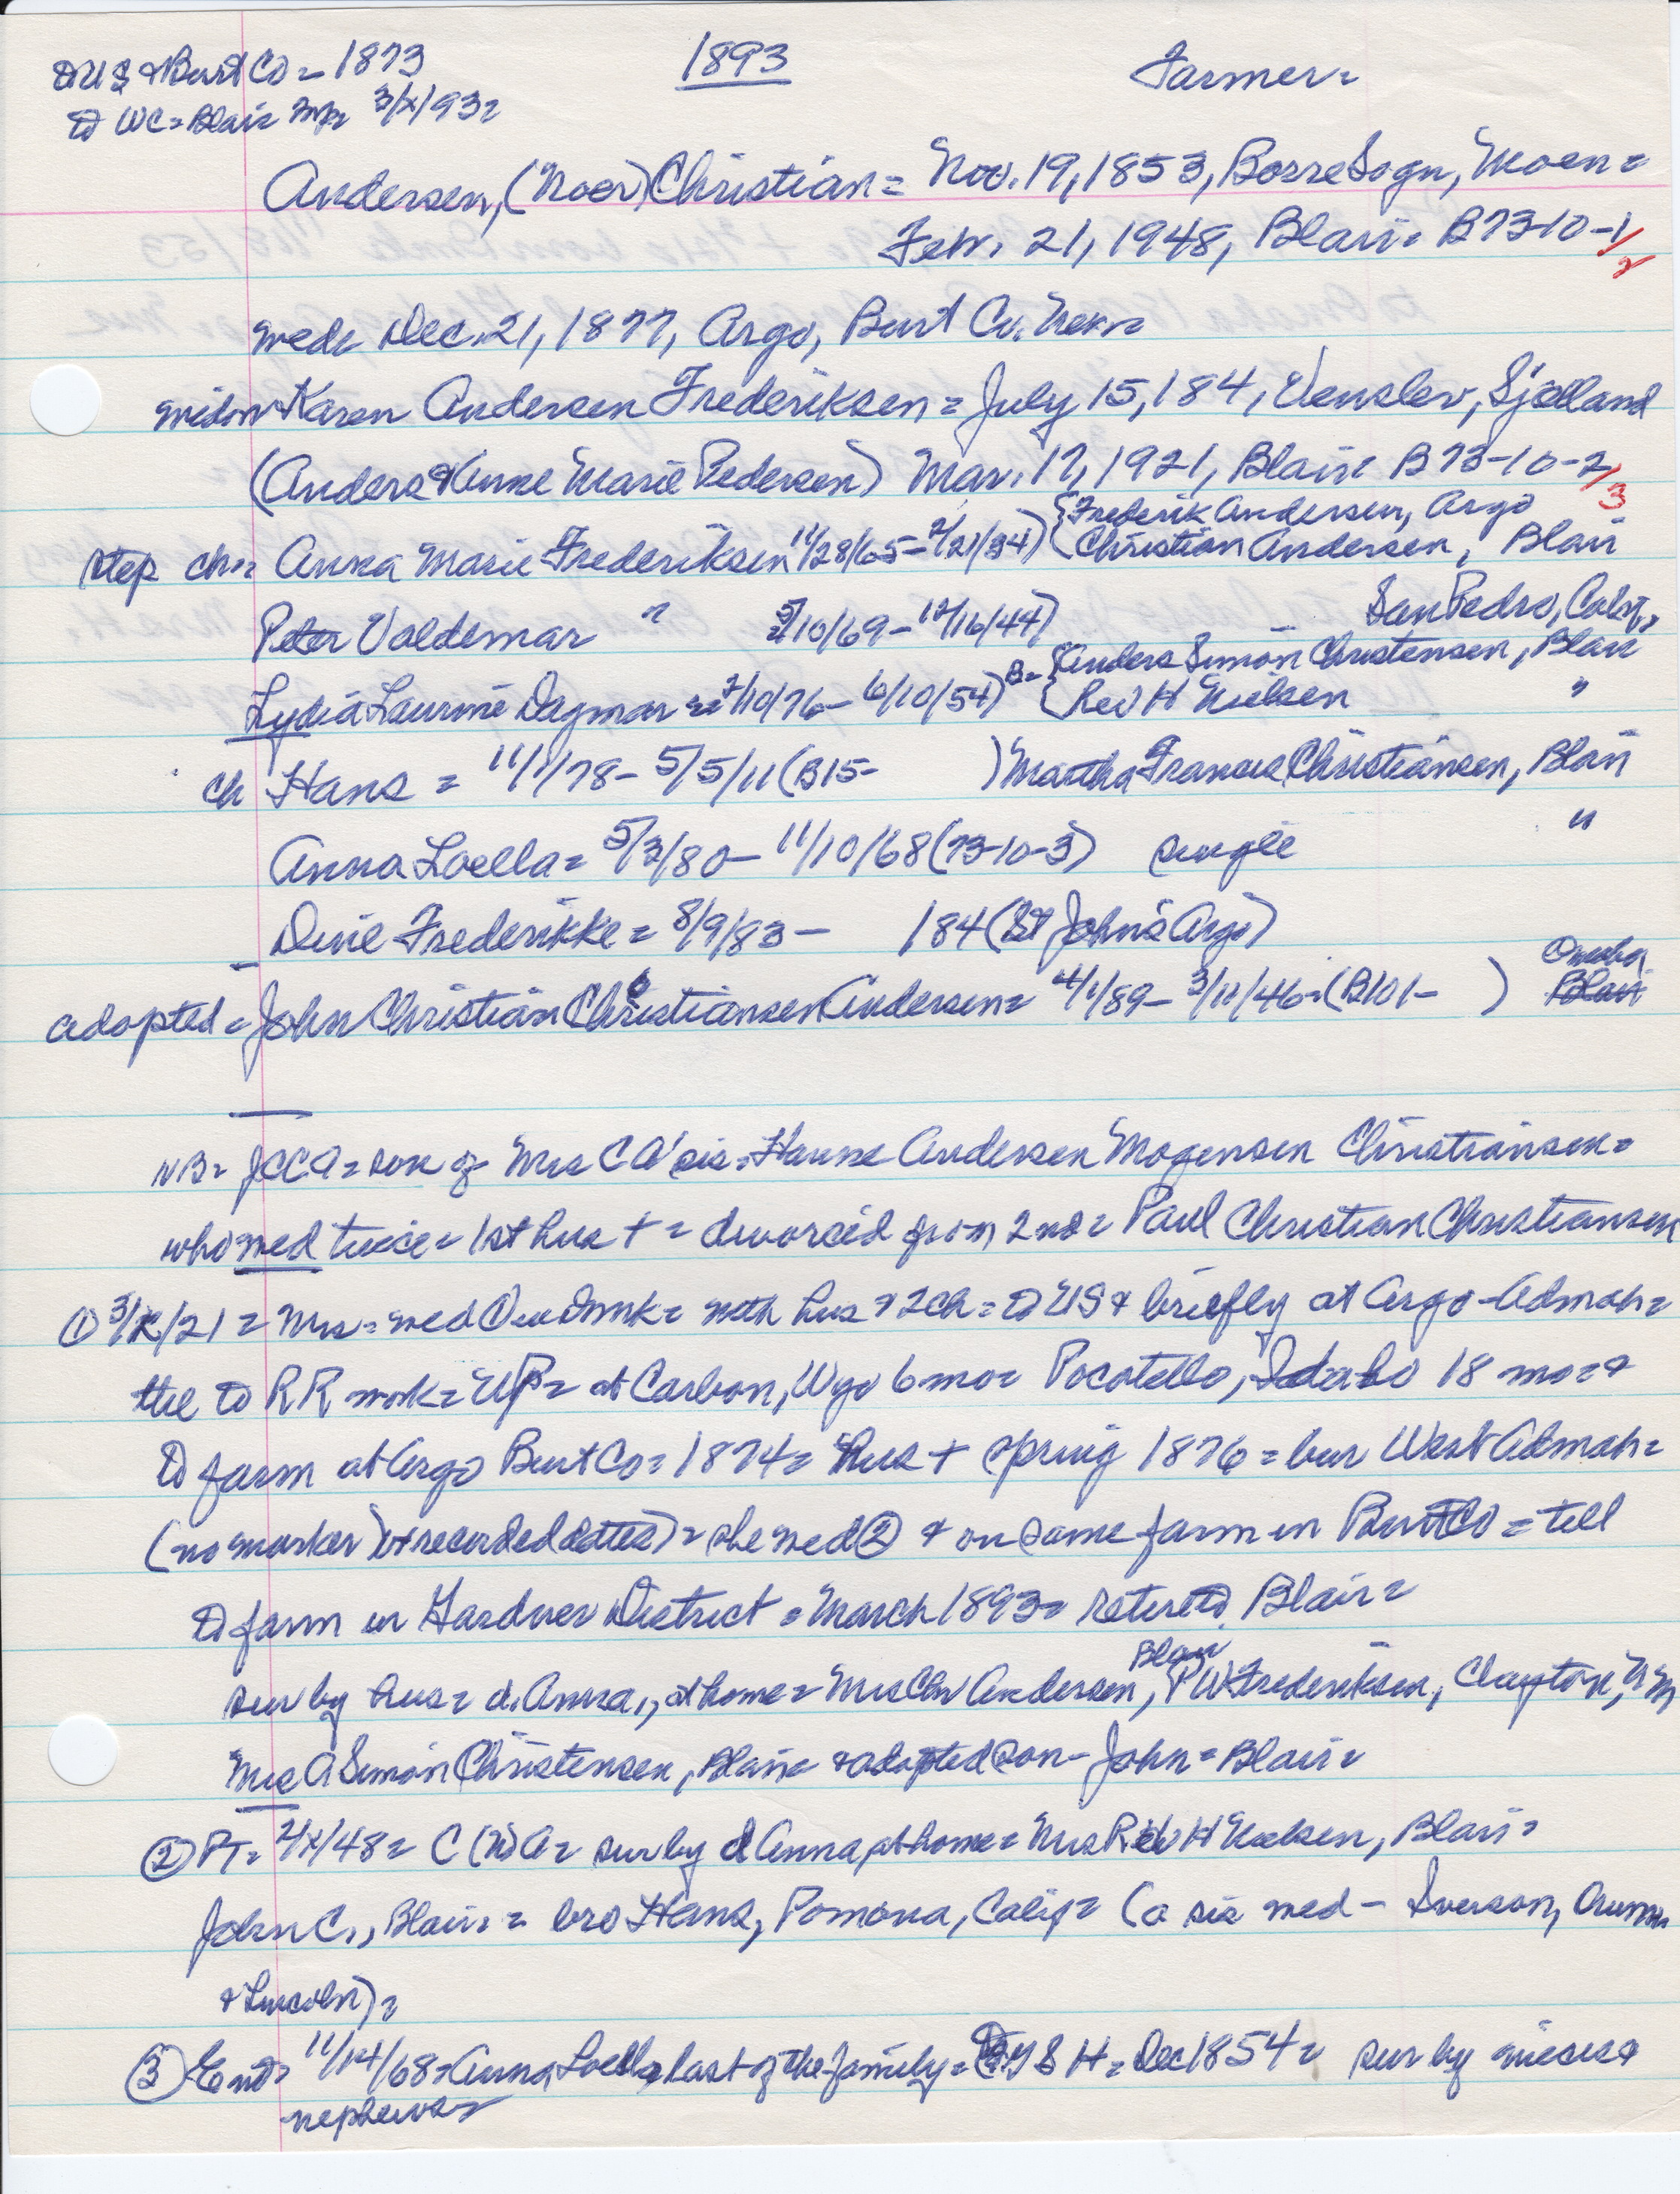 to US & Burt Co = 1873
1893
Farmer =
to WC = Blair 3/x/93 =
Andersen, (Noer) Christian = Nov. 19, 1853, Borre Sogn, Moen =
Feb. 21, 1948, Blair = B73-10-1/2
wed = Dec. 21, 1877, Argo, Burt Co. Neb =
widow Karen Andersen Frederiksen = July 15, 184, Venslev, Sjælland
(Anders & Anne Marie Pedersen) Mar. 17, 1921, Blair B73-10-2/3
{Frederik Andersen, Argo
step ch = Anna Marie Frederiksen 11/28/65 - 2/21/34) {Christian Andersen, Blair
Peter Valdemar " 5/10/69 - 12/16/44) San Pedro, Calif,
{Anders Simon Christensen, Blair
Lydia Laurine Dagmar = 7/10/76 - 6/10/54) B = {Rev H Nielsen "
ch Hans = 11/1/78 - 5/5/11 (B15- ) Martha Frances Christiansen, Blair
Anna Loella = 5/3/80 - 11/10/68 (73-10-3) single "
Dine Frederikke = 8/9/83 - 184 (St John's Argo)
Omaha
adopted = John Christian Christiansen Andersen = 4/1/89 - 3/11/46 = (B101- ) Blair
NB = JCCA = son of Mrs CA' sis = Hanne Andersen Mogensen Christiansen =
who wed twice = 1st hus + = divorced from 2nd = Paul Christian Christiansen
① 3/x/21 = Mrs = wed ① in Dmk = with hus & 2ch = to US & briefly at Argo - Admah =
then to RR work = UP = at Carbon, Wyo 6 mo = Pocatello, Idaho 18 mo = &
to farm at Argo Burt Co = 1874 = hus + spring 1876 = bur West Admah =
(no marker or recorded dates) = she wed ② & on same farm in Burt Co = till
to farm in Gardner District = March 1893 = retire to Blair =
Blair
sur by hus = d. Anna, at home = Mrs Chr Andersen, P W Frederiksen, Clayton, NM
Mrs A Simon Christensen, Blair = & adopted son - John = Blair =
② PT = 2/x/48 = C (N) A = sur by d Anna at home = Mrs Rev H Nielsen, Blair =
John C., Blair = = bro Hans, Pomona, Calif = (a sis wed - Iverson,
& Lincoln) =
③ Ent = 11/14/68 = Anna Loella last of the family = H = Dec 1854 = sur by nieces &
nephews =